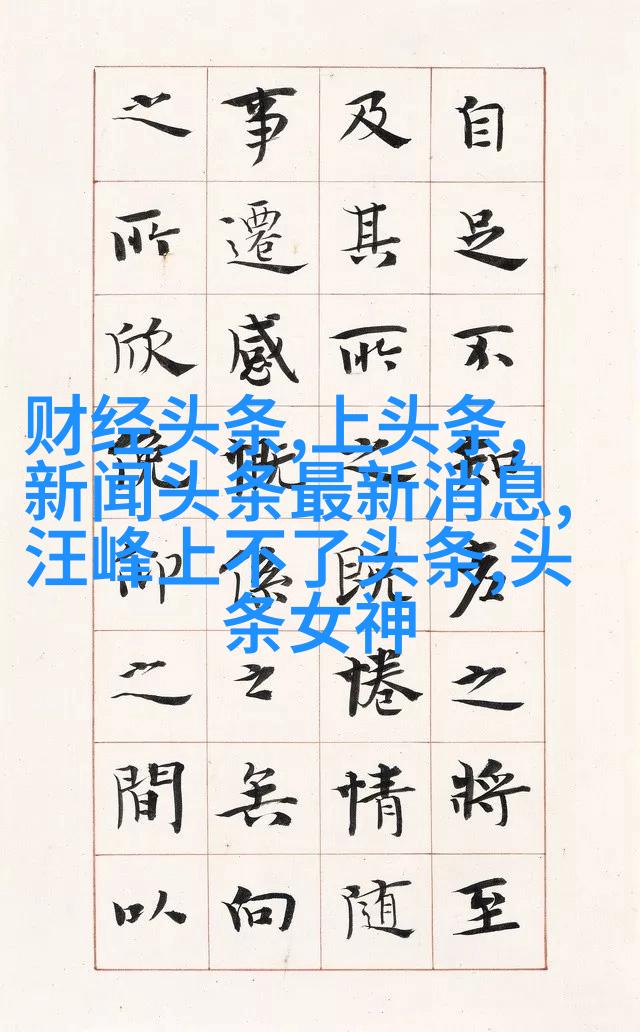 自足不知老之將至
及其所之既惓情隨
事遷感慨係之矣向
之所欣俛仰之間以
财经头条,上头条,
新闻头条最新消息,
汪峰上不了头条,头
条女神